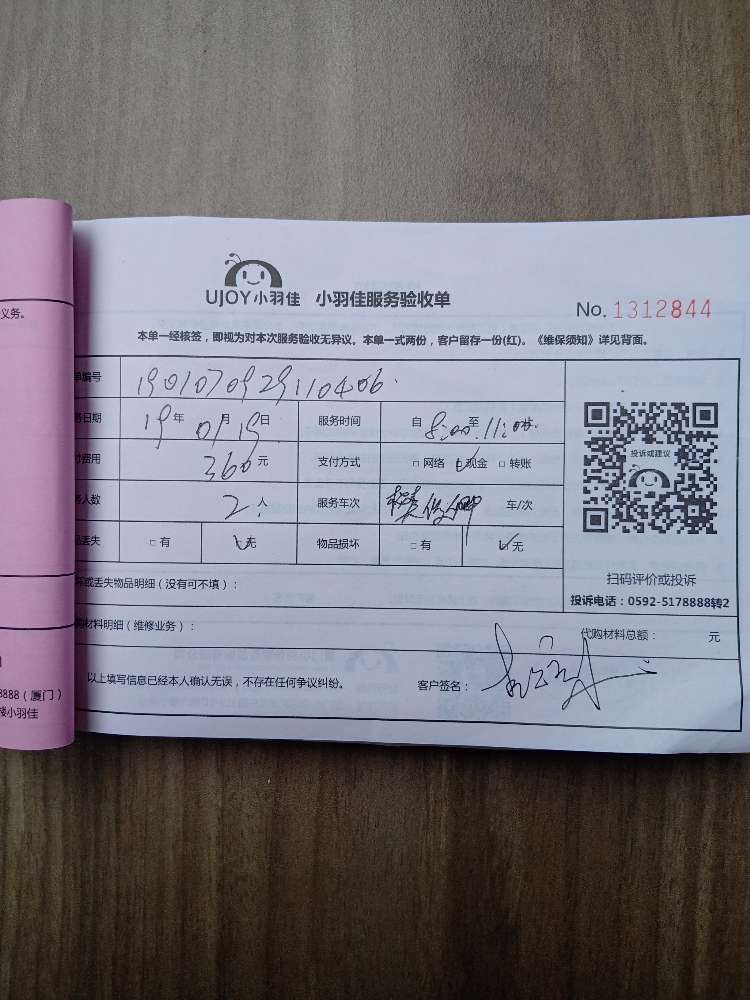 义务。
UJOY小羽佳 小羽佳服务验收单
No. 1312844
本单一经核签，即视为对本次服务验收无异议。本单一式两份，客户留存一份(红)。《维保须知》详见背面。
单编号 1901070929110406
务日期 19年 01月 19日 服务时间 自 8:00 至 11:00
付费用 360元 支付方式 □ 网络 □ 现金 □ 转账
务人数 2人 服务车次 车/次
品丢失 □ 有 □ 无 物品损坏 □ 有 □ 无
投诉或建议
扫码评价或投诉
投诉电话：0592-5178888转2
坏或丢失物品明细（没有可不填）：
购材料明细（维修业务）： 代购材料总额： 元
以上填写信息已经本人确认无误，不存在任何争议纠纷。 客户签名：
8888（厦门）
楼小羽佳